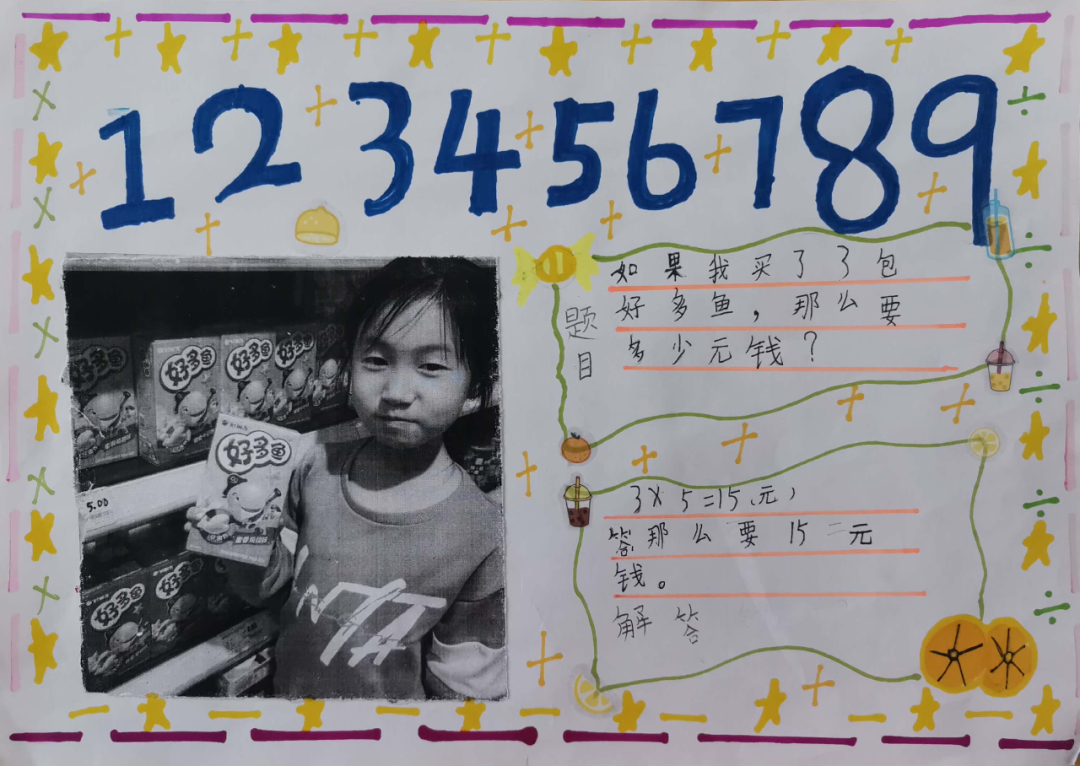 123456789
题目
如果我买了3包
好多鱼，那么要
多少元钱？
3×5=15(元)
答那么要15元
钱。
解答
好多鱼
好多鱼
好多鱼
好多鱼
好多鱼
5.00
好多鱼
好多鱼